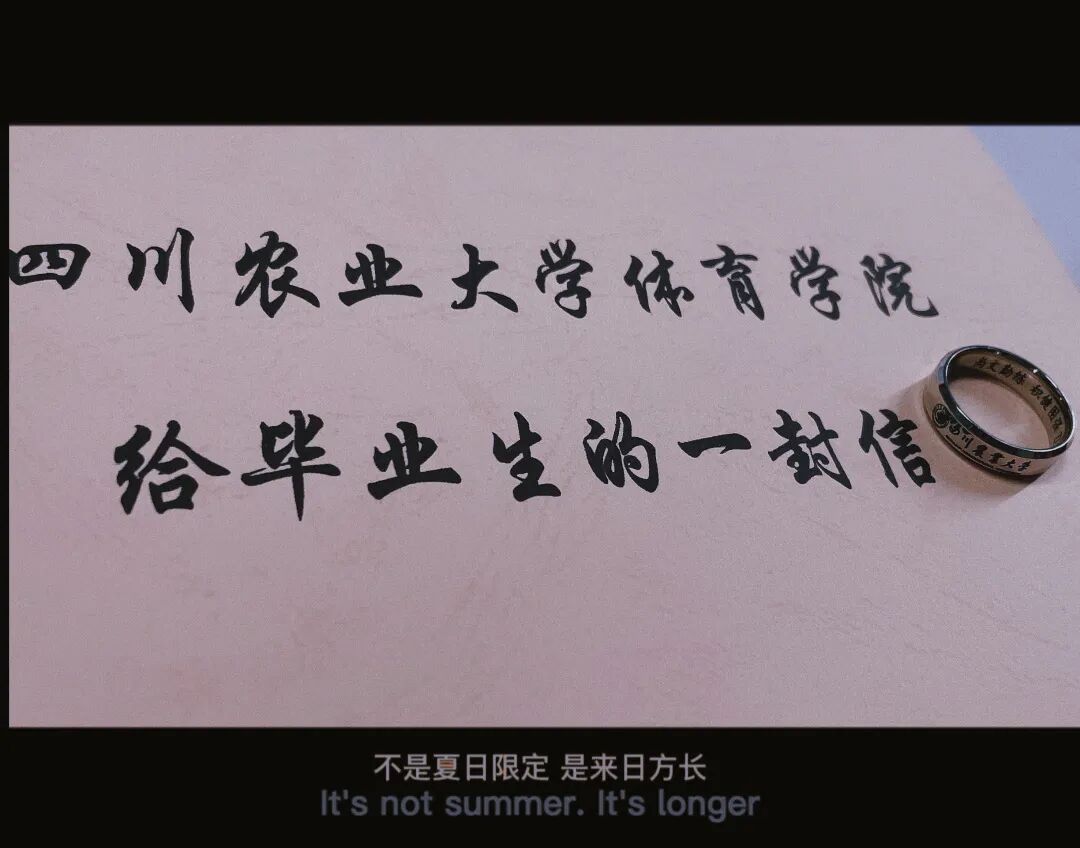 四川农业大学体育学院
给毕业生的一封信
尚文勤练 积健
四川农业大学
不是夏日限定 是来日方长
It's not summer. It's longer